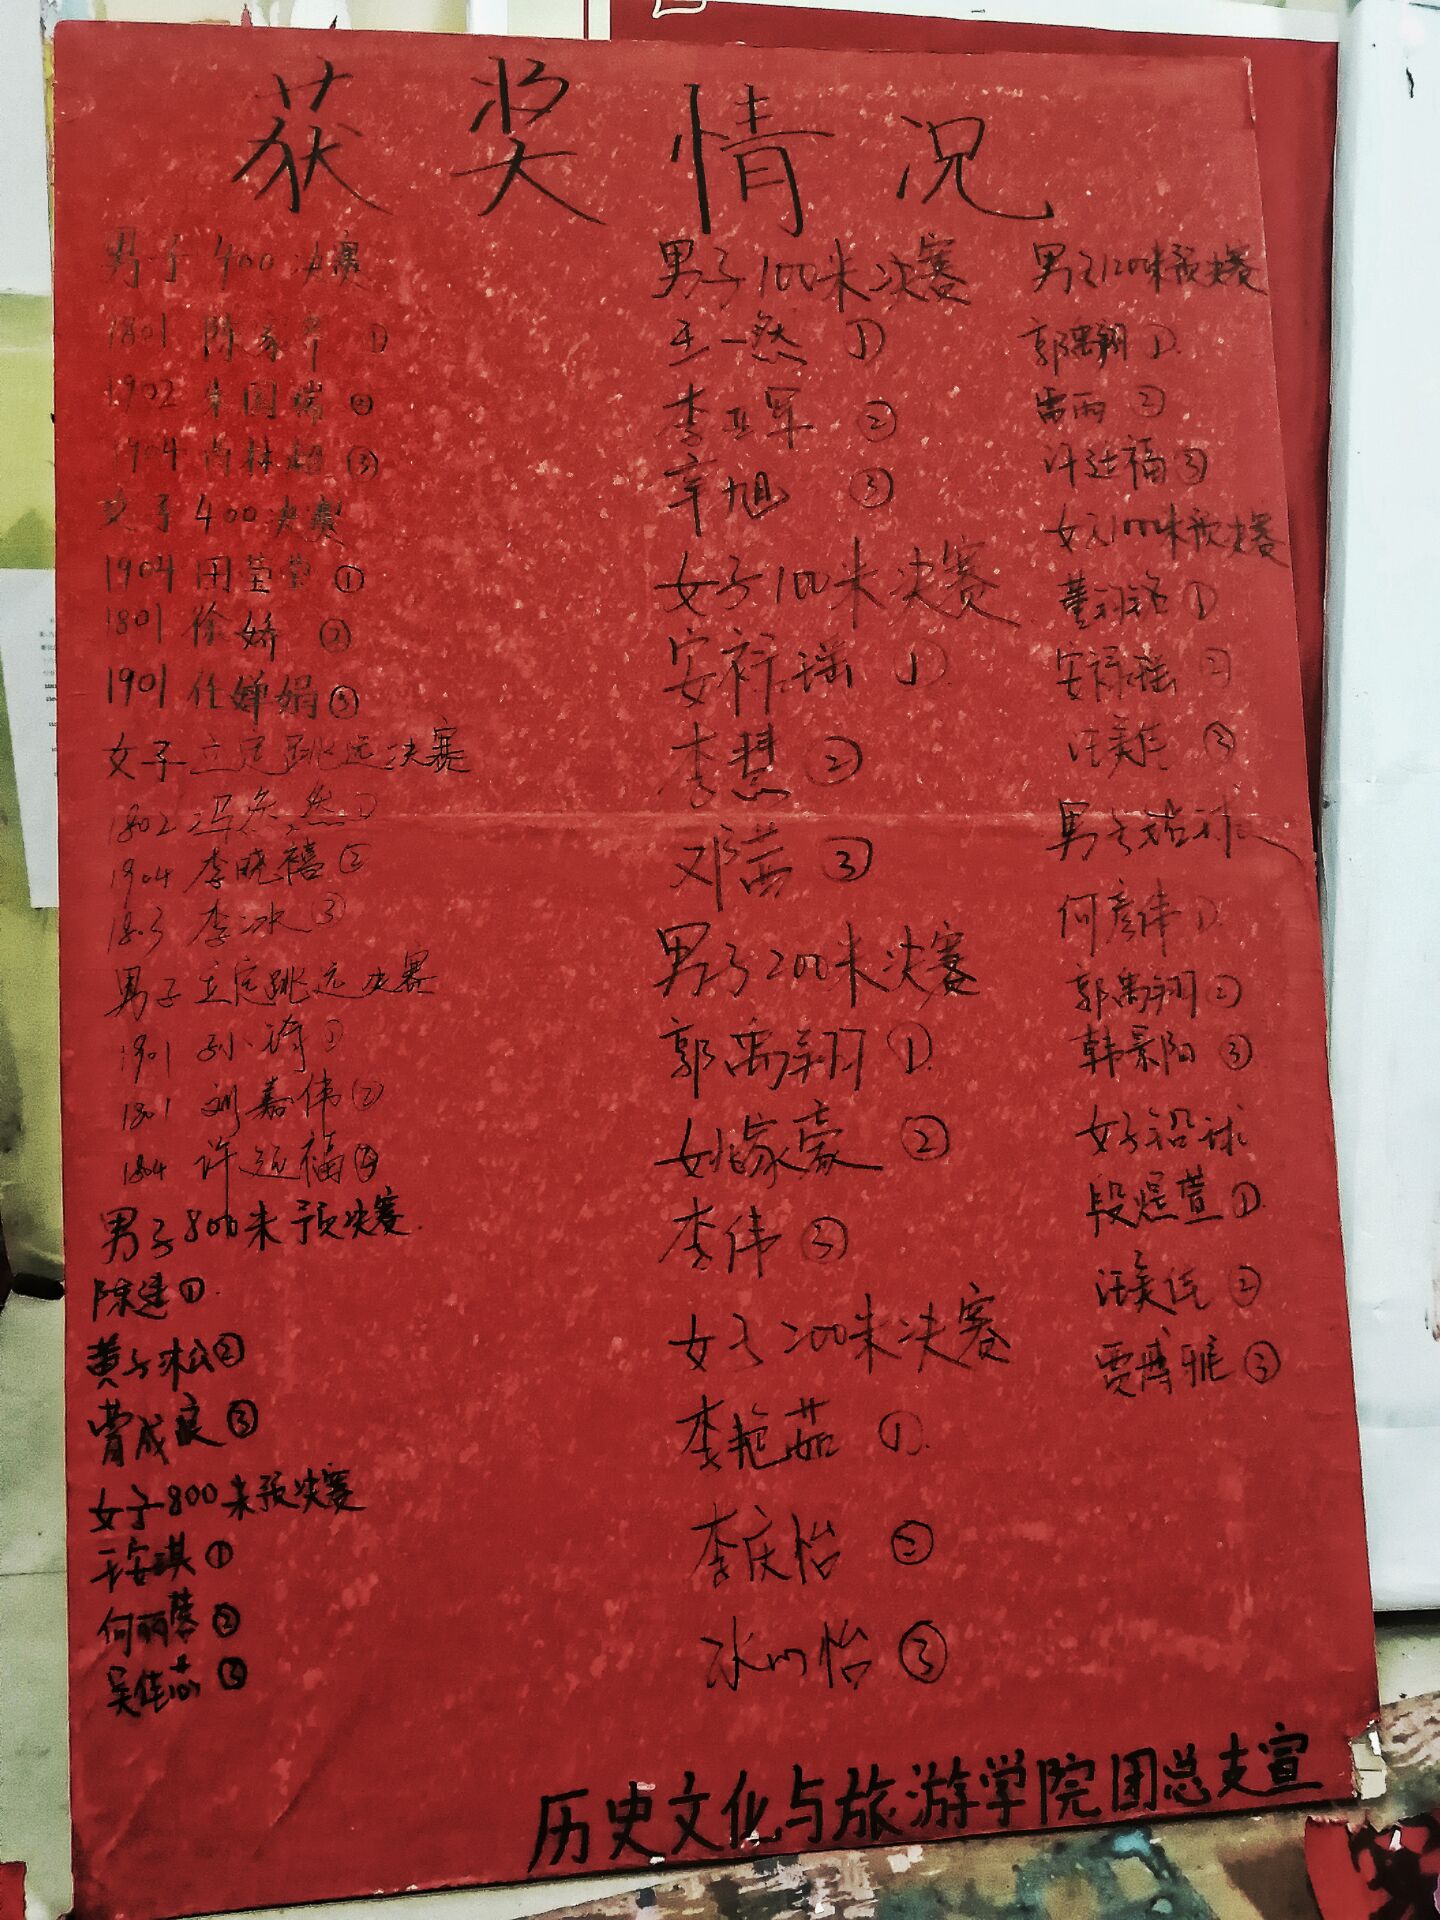 获奖情况
男子400决赛
1801 陈家 ①
1902 朱国瑞 ②
1904 肖林超 ③
女子400决赛
1904 田莹莹 ①
1801 徐娇 ②
1901 任婵娟 ③
女子立定跳远决赛
1802 冯 然 ①
1904 李晓禧 ②
1803 李冰 ③
男子立定跳远决赛
1901 孙 ①
1801 刘嘉伟 ②
1804 许延福 ③
男子800米预决赛
陈建 ①
黄子淞 ②
曹成良 ③
女子800米预决赛
王安琪 ①
何丽蓉 ②
吴佳茹 ③
男子100米决赛
王一然 ①
李亚军 ②
辛旭 ③
女子100米决赛
安禄瑶 ①
李慧 ②
邓茜 ③
男子200米决赛
郭禹翔 ①
姚家豪 ②
李伟 ③
女子200米决赛
李艳茹 ①
李庆怡 ②
冰心怡 ③
男子1200米预决赛
郭禹翔 ①
雷雨 ②
许延福 ③
女子 预决赛
董 ①
安禄瑶 ②
汪美佳 ③
男子铅球
何彦伟 ①
郭禹翔 ②
韩景阳 ③
女子铅球
段煜萱 ①
汪美佳 ②
贾博雅 ③
历史文化与旅游学院团总支宣